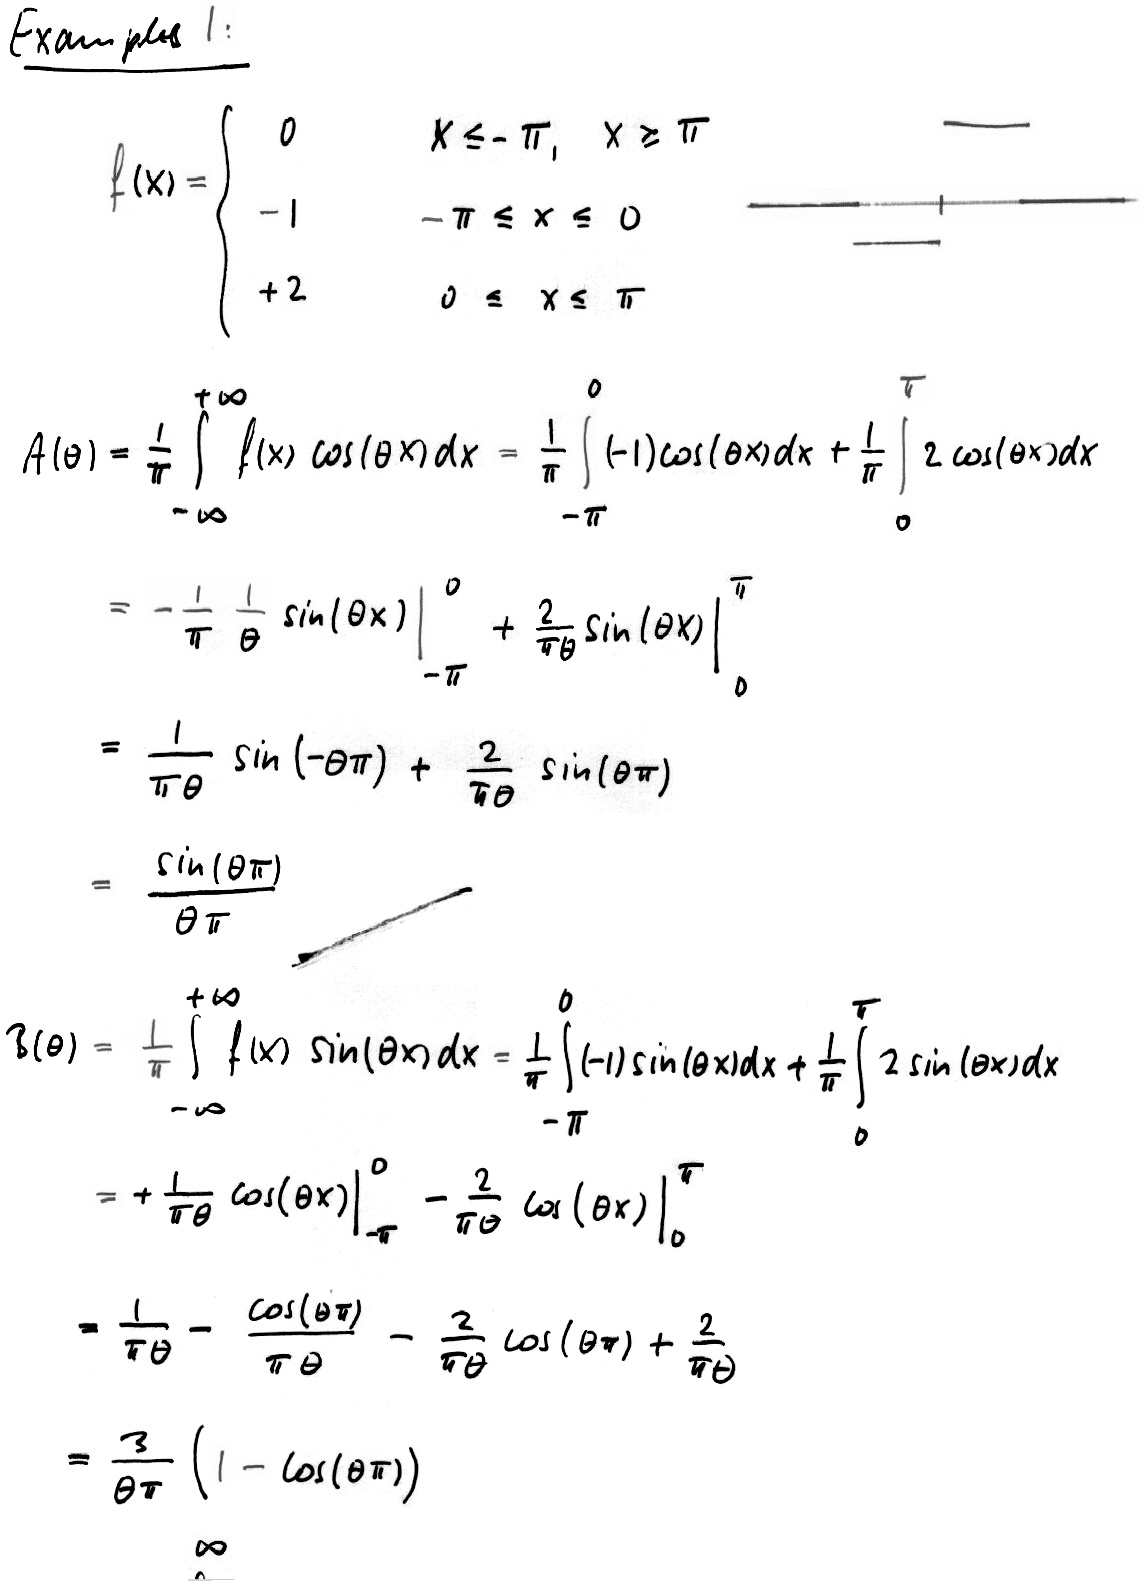 Examples 1:
f(x) = { 0   x ≤ -π, x ≥ π
-1   -π ≤ x ≤ 0
+2   0 ≤ x ≤ π
A(θ) = 1/π ∫_{-∞}^{+∞} f(x) cos(θx)dx = 1/π ∫_{-π}^{0} (-1)cos(θx)dx + 1/π ∫_{0}^{π} 2 cos(θx)dx
= - 1/π 1/θ sin(θx) |_{-π}^{0} + 2/πθ sin(θx) |_{0}^{π}
= 1/πθ sin(-θπ) + 2/πθ sin(θπ)
= sin(θπ)/θπ
B(θ) = 1/π ∫_{-∞}^{+∞} f(x) sin(θx)dx = 1/π ∫_{-π}^{0} (-1)sin(θx)dx + 1/π ∫_{0}^{π} 2 sin(θx)dx
= + 1/πθ cos(θx) |_{-π}^{0} - 2/πθ cos(θx) |_{0}^{π}
= 1/πθ - cos(θπ)/πθ - 2/πθ cos(θπ) + 2/πθ
= 3/θπ (1 - cos(θπ))
∞